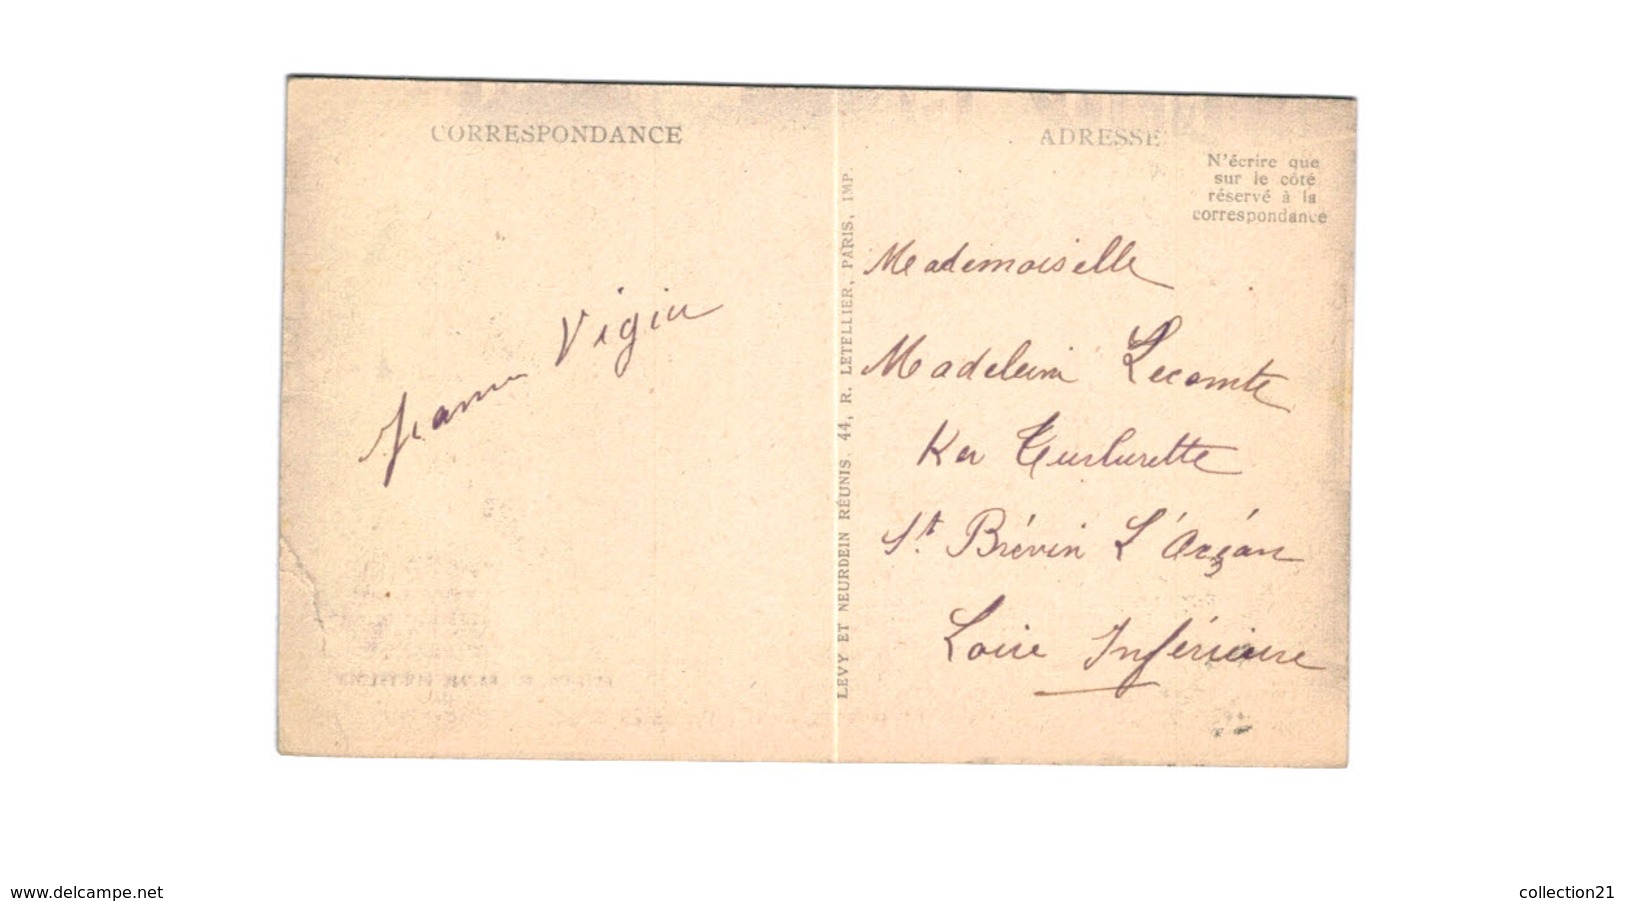 CORRESPONDANCE
Jeanne Vigiu
ADRESSE
N'écrire que
sur le côté
réservé à la
correspondance
LEVY ET NEURDEIN RÉUNIS. 44, R. LETELLIER, PARIS, IMP.
Mademoiselle
Madeleine Lecomte
Ker Turlurette
St Brévin L'Oçéan
Loire Inférieure
www.delcampe.net
collection21